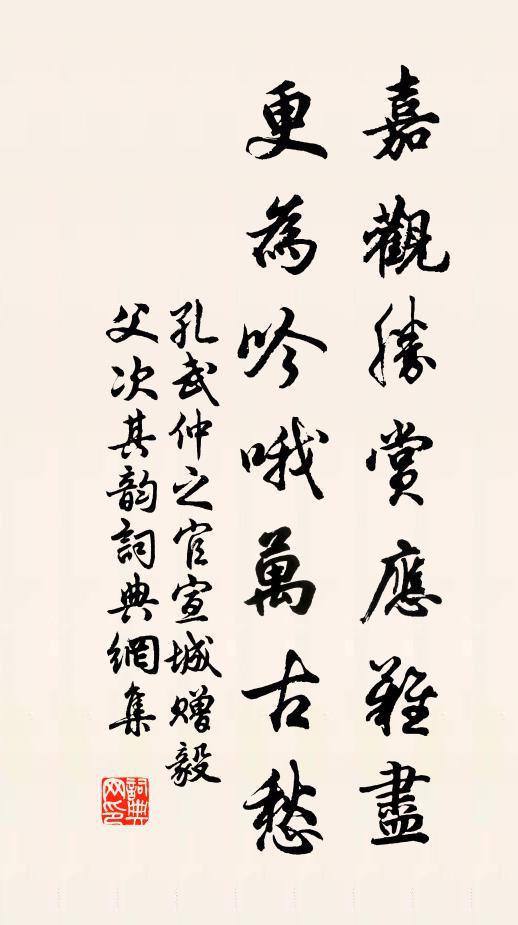 嘉觀勝賞應難盡
更為吟哦萬古愁
孔武仲之官宣城贈毅
父次其韵詞典網集
詞典
网印